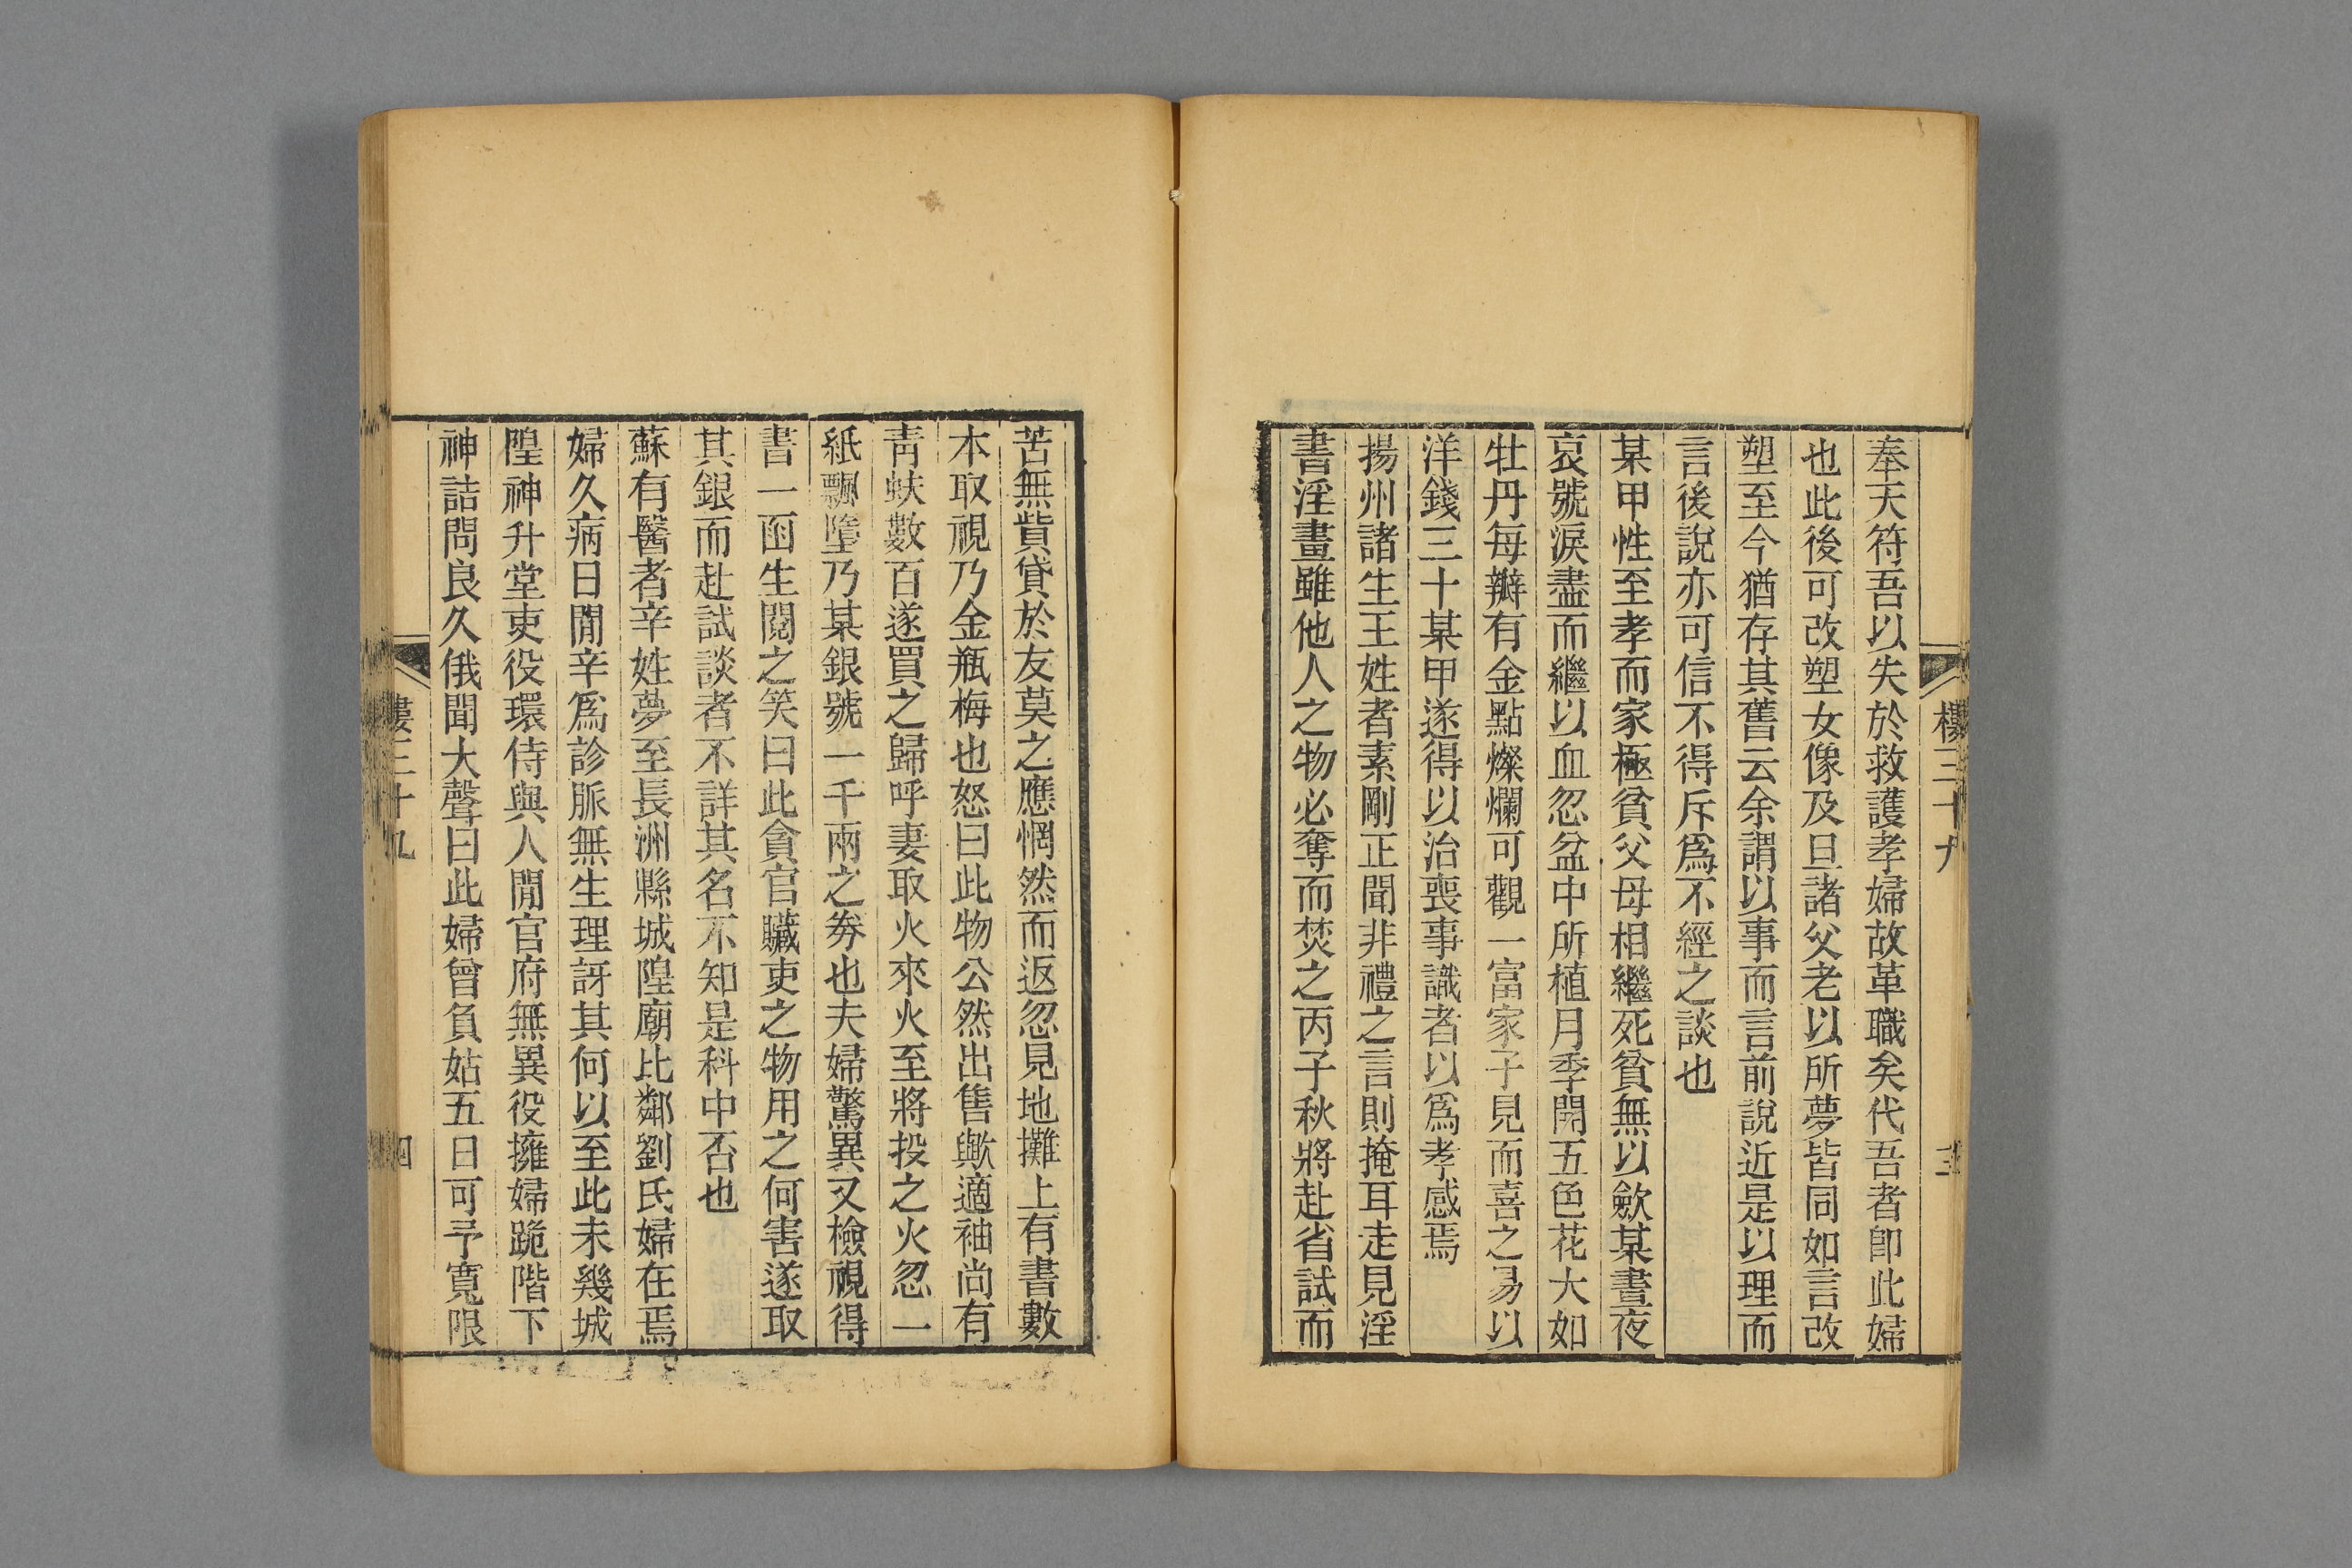 奉天符吾以失於救護孝婦故革職矣代吾者卽此婦
也此後可改塑女像及旦諸父老以所夢皆同如言改
塑至今猶存其舊云余謂以事而言前說近是以理而
言後說亦可信不得斥爲不經之談也
某甲性至孝而家極貧父母相繼死貧無以歛某晝夜
哀號淚盡而繼以血忽盆中所植月季開五色花大如
牡丹每瓣有金點燦爛可觀一富家子見而喜之易以
洋錢三十某甲遂得以治喪事識者以爲孝感焉
揚州諸生王姓者素剛正聞非禮之言則掩耳走見淫
書淫畫雖他人之物必奪而焚之丙子秋將赴省試而
苦無貲貸於友莫之應惘然而返忽見地攤上有書數
本取視乃金瓶梅也怒曰此物公然出售歟適袖尚有
靑蚨數百遂買之歸呼妻取火來火至將投之火忽一
紙飄墮乃某銀號一千兩之券也夫婦驚異又檢視得
書一函生閱之笑曰此貪官贓吏之物用之何害遂取
其銀而赴試談者不詳其名不知是科中否也
蘇有醫者辛姓夢至長洲縣城隍廟比鄰劉氏婦在焉
婦久病日閒辛爲診脈無生理訝其何以至此未幾城
隍神升堂吏役環侍與人閒官府無異役擁婦跪階下
神詰問良久俄聞大聲曰此婦曾負姑五日可予寬限
樓三十九
樓三十九
四